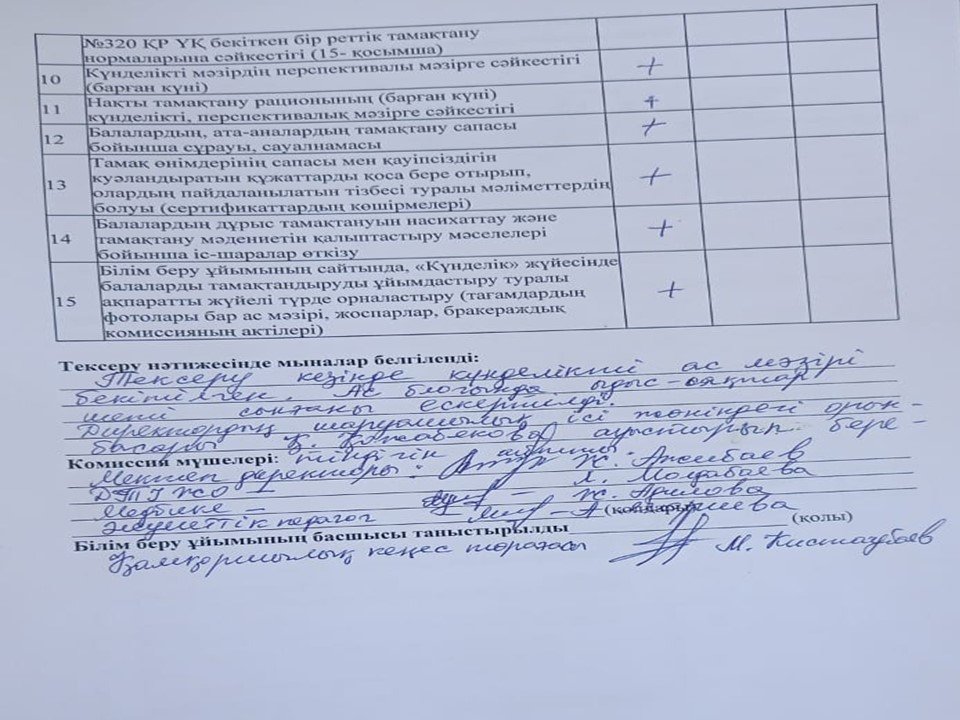 №320 ҚР ҮҚ бекіткен бір реттік тамақтану
нормаларына сәйкестігі (15- қосымша)
10 Күнделікті мәзірдің перспективалы мәзірге сәйкестігі +
(барған күні)
11 Нақты тамақтану рационының (барған күні) +
күнделікті, перспективалық мәзірге сәйкестігі
12 Балалардың, ата-аналардың тамақтану сапасы +
бойынша сұрауы, сауалнамасы
13 Тамақ өнімдерінің сапасы мен қауіпсіздігін +
куәландыратын құжаттарды қоса бере отырып,
олардың пайдаланылатын тізбесі туралы мәліметтердің
болуы (сертификаттардың көшірмелері)
14 Балалардың дұрыс тамақтануын насихаттау және +
тамақтану мәдениетін қалыптастыру мәселелері
бойынша іс-шаралар өткізу
15 Білім беру ұйымының сайтында, «Күнделік» жүйесінде +
балаларды тамақтандыруды ұйымдастыру туралы
ақпаратты жүйелі түрде орналастыру (тағамдардың
фотолары бар ас мәзірі, жоспарлар, бракераждық
комиссияның актілері)
Тексеру нәтижесінде мыналар белгіленді:
Тексеру кезінде күнделікті ас мәзірі
бекітілген. Ас блогында ыдыс-аяқтар
ескертілді.
Директордың шаруашылық ісі жөніндегі орын-
басары ауыстырып бере-
Комиссия мүшелері: тіндігін айтты.
Мектеп директоры: Ж. Ажибаев
ДТІЖО Л. Молдабаева
Медбике – Ж.
Әлеуметтік педагог (қолдары)
Білім беру ұйымының басшысы таныстырылды (қолы)
Қамқоршылық кеңес төрағасы М.